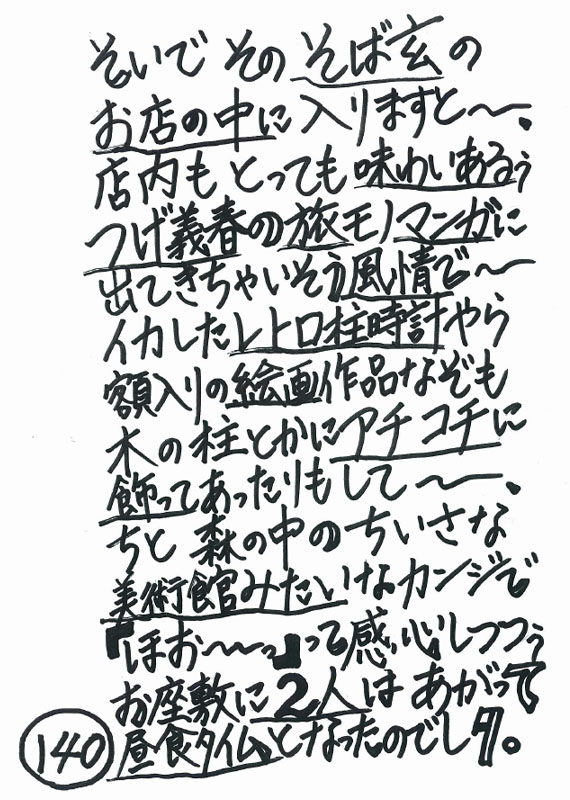 そいで そのそば玄の
お店の中に入りますと〜〜。
店内もとっても味わいあるぅ
つげ義春の旅モノマンガに
出てきちゃいそう風情で〜
イカしたレトロ柱時計やら
額入りの絵画作品なぞも
木の柱とかにアチコチに
飾ってあったりもして〜〜。
ちと森の中のちいさな
美術館みたいなカンジで
『ほお〜〜っ』って感心しつつぅ
お座敷に2人はあがって
昼食タイムとなったのでしタ。
140